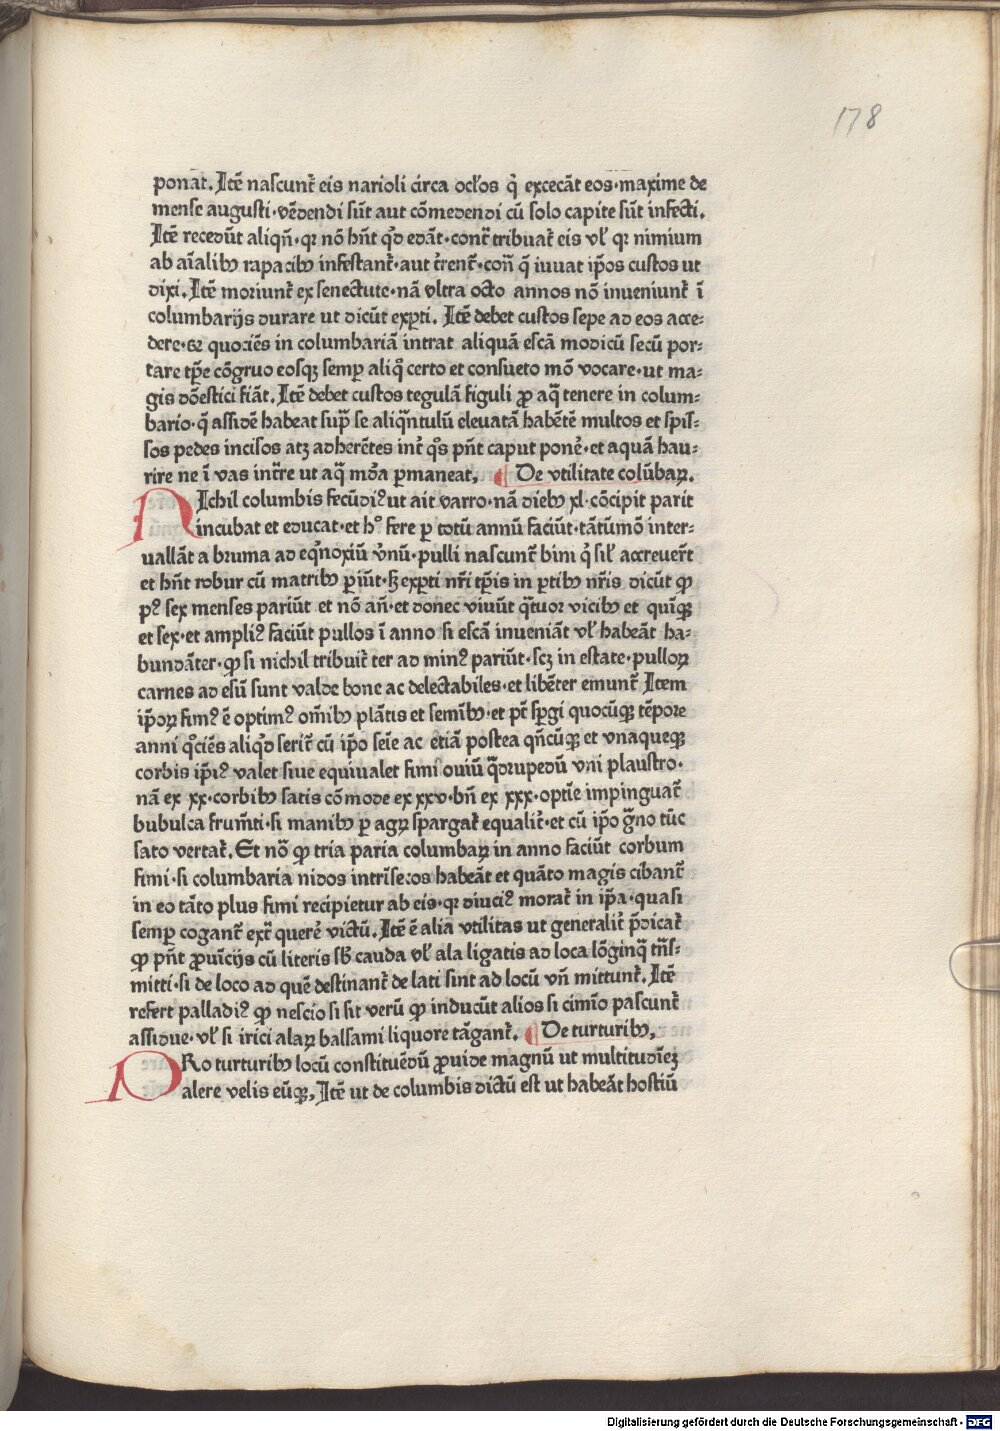 178
ponat̄. Itē nascunt̄ eis narioli circa ocl'os q̇ excecāt eos·maxime de
mense augusti·vēdendi sūt aut cōmedendi cū solo capite sūt infecti.
Itē recedūt aliqn̄·qꝛ nō hn̄t qḋ edāt·cont̄ tribuat̄ eis vl' qꝛ nimium
ab aīalibꝫ rapacibꝫ infestant̄·aut t̄rent̄·con̄ q̄ iuuat ip̄os custos ut
dixi. Itē moriunt̄ ex senectute·nā vltra octo annos nō inueniunt̄ ī
columbarijs durare ut dicūt exꝑti. Itē debet custos sepe ad eos acce⸗
dere·⁊ quociēs in columbariā intrat aliquā escā modicū secū por⸗
tare tꝑe cōgruo eosqꝫ semꝑ aliq̊ certo et consueto mō vocare·ut ma⸗
gis dōestici fiāt. Itē debet custos tegulā figuli ꝓ aq̄ tenere in colum⸗
bario·q̄ assidē habeat supͣ se aliqͣntulū eleuatā habētē multos et spis⸗
sos pedes incisos atꝫ adherētes int̄ q̊s pn̄t caput poner̄·et aquā hau⸗
rire ne ī vas int̄re ut aq̄ mōa ꝑmaneat, ¶ De vtilitate colūbaꝝ.
NIchil columbis fecūdiꝰ ut ait varro·nā diebꝫ xl·cōcipit parit
incubat et educat·et h° fere ꝑ totū annū faciūt·tātūmō inter⸗
uallāt a bruma ad eqͥnoxiū v̄nū·pulli nascunt̄ bini q̇ sil' accreuer̄t
et hn̄t robur cū matribꝫ ꝑiūt·sꝫ exꝑti nr̄i tꝑis in ꝑtibꝫ nr̄is dicūt ꝙ
pꝰ sex menses pariūt et nō an̄·et donec viuūt qͣtuor vicibꝫ et quīqꝫ
et sex·et ampliꝰ faciūt pullos ī anno si escā inueniāt vl' habeāt ha⸗
bundāter·ꝙ si nichil tribuit̄ ter ad minꝰ pariūt·scꝫ in estate·pulloꝝ
carnes ad esū sunt valde bone ac delectabiles·et libēter emunt̄ Item
ip̄oꝝ fimꝰ ē optimꝰ om̄ibꝫ plātis et semībꝫ·et pt̄ sꝑgi quocūqꝫ tēpore
anni qͦciēs aliqͥd serit̄ cū ip̄o seīe ac etiā postea qn̄cūqꝫ et vnaqueqꝫ
corbis ip̄iꝰ valet siue equiualet fimi ouiū qͣdrupedū vni plaustro·
nā ex xx·corbibꝫ satis cōmode ex xxv·bn̄ ex xxx·optīe impinguat̄
bubulca frum̄ti·si manibꝫ ꝑ agꝝ spargat̄ equalit̄·et cū ip̄o gͣno tūc
sato vertat̄. Et nō ꝙ tria paria columbaꝝ in anno faciūt corbum
fimi·si columbaria nidos intrīsecos habeāt et quāto magis cibant̄
in eo tāto plus fimi recipietur ab eis·qꝛ diuciꝰ morat̄ in ip̄a·quasi
semꝑ cogant̄ ext̄ querer̄ victū. Itē ē alia vtilitas ut generalit̄ p̄dicat̄
ꝙ pn̄t ꝓuīcijs cū literis sb̄ cauda vl' ala ligatis ad loca lōginq̄ tn̄s⸗
mitti·si de loco ad quē destinant̄ de lati sint ad locū vn̄ mittunt̄. Itē
refert palladiꝰ ꝙ nescio si sit verū ꝙ inducūt alios si cimīo pascunt̄
assidue·vl' si irici alaꝝ balsami liquore tāgant̄. ¶ De turturibꝫ,
PRo turturibꝫ locū constituēdū ꝓuide magnū ut multitudīeꝫ
alere velis eūqꝫ, Itē ut de columbis dictū est ut habeāt hostiū
Digitalisierung gefördert durch die Deutsche Forschungsgemeinschaft - DFG